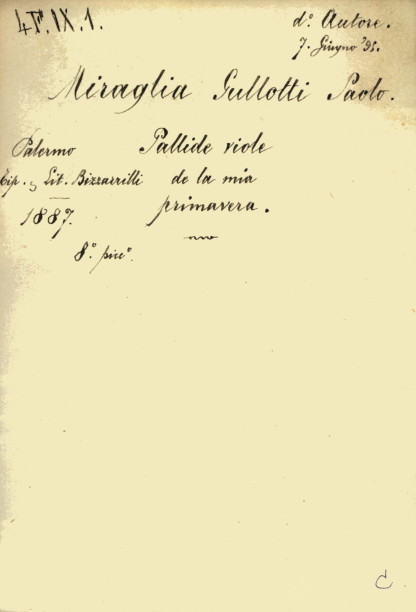 4F.IX.1.
d.º Autore.
7. Giugno '95.
Miraglia Gullotti Paolo.
Palermo
Pallide viole
Tip. e Lit. Bizzarrilli
de la mia
1887.
primavera.
8.º picc.º
C